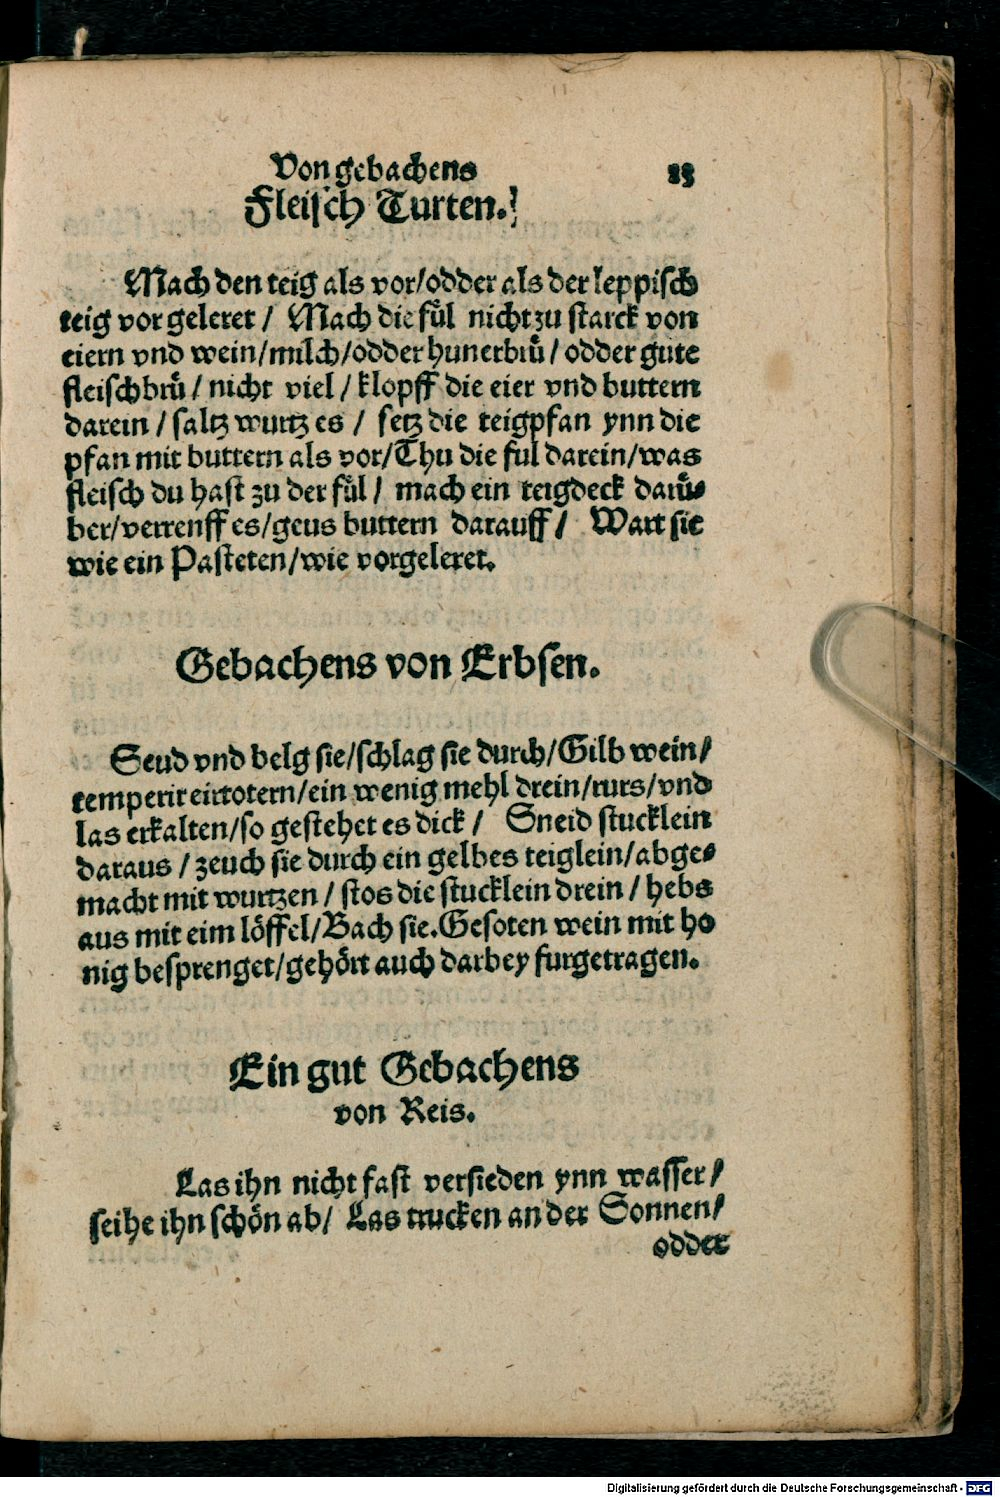 Von gebachens 23
Fleisch Turten.
Mach den teig als vor/odder als der leppisch
teig vor geleret / Mach die fül nicht zu starck von
eiern vnd wein/milch/odder hunerbrü/odder gute
fleischbrü/nicht viel/klopff die eier vnd buttern
darein/saltz wurtz es/ setz die teigpfan ynn die
pfan mit buttern als vor/Thu die ful darein/was
fleisch du hast zu der fül/ mach ein teigdeck darü-
ber/verrenff es/geus buttern darauff/ Wart sie
wie ein Pasteten/wie vorgeleret.
Gebachens von Erbsen.
Seud vnd belg sie/schlag sie durch/Gilb wein/
temperir eirtotern/ein wenig mehl drein/rurs/vnd
las erkalten/so gestehet es dick/ Sneid stucklein
daraus/zeuch sie durch ein gelbes teiglein/abge-
macht mit wurtzen/stos die stucklein drein/hebs
aus mit eim löffel/Bach sie.Gesoten wein mit ho
nig besprenget/gehört auch darbey furgetragen.
Ein gut Gebachens
von Reis.
Las ihn nicht fast versieden ynn wasser/
seihe ihn schön ab/ Las trucken an der Sonnen/
odder
Digitalisierung gefördert durch die Deutsche Forschungsgemeinschaft - DFG